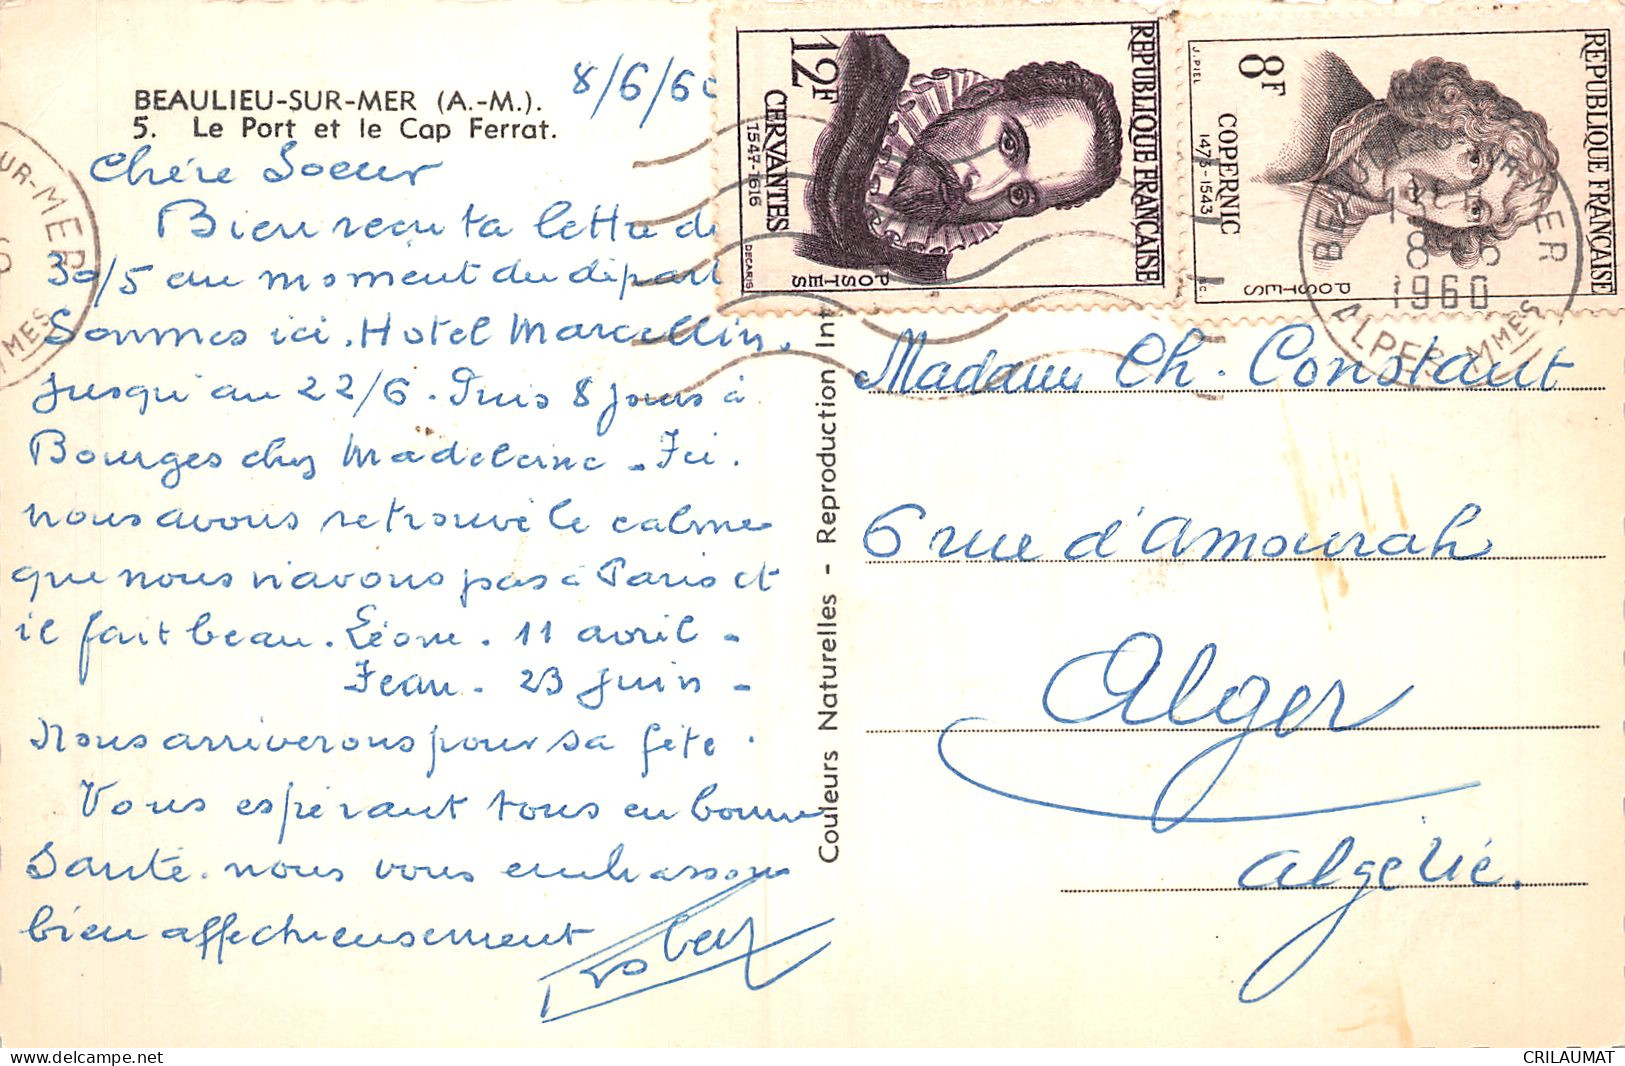 BEAULIEU-SUR-MER (A.-M.).
5. Le Port et le Cap Ferrat.
8/6/60
Chère Soeur
Bien reçu ta lettre de
30/5 au moment du départ
Sommes ici. Hotel Marcellin.
jusqu'au 22/6. Puis 8 jours à
Bourges chez Madeleine - Ici.
nous avons retrouvé le calme
que nous n'avons pas à Paris et
il fait beau. Léone. 11 avril -
Jean. 23 juin -
Nous arriverons pour sa fête.
Vous espérant tous en bonne
Santé. nous vous embrassons
bien affectueusement
Couleurs Naturelles - Reproduction Int
REPUBLIQUE FRANÇAISE
12F
CERVANTES
1547-1616
POSTES
DECARIS
REPUBLIQUE FRANÇAISE
8F
COPERNIC
1473-1543
POSTES
J. PIEL
BEAULIEU-SUR-MER
1960
ALPES-MMES
UR-MER
MMES
Madame Ch. Constant
6 rue d'Amourah
Alger
Algérie.
CRILAUMAT